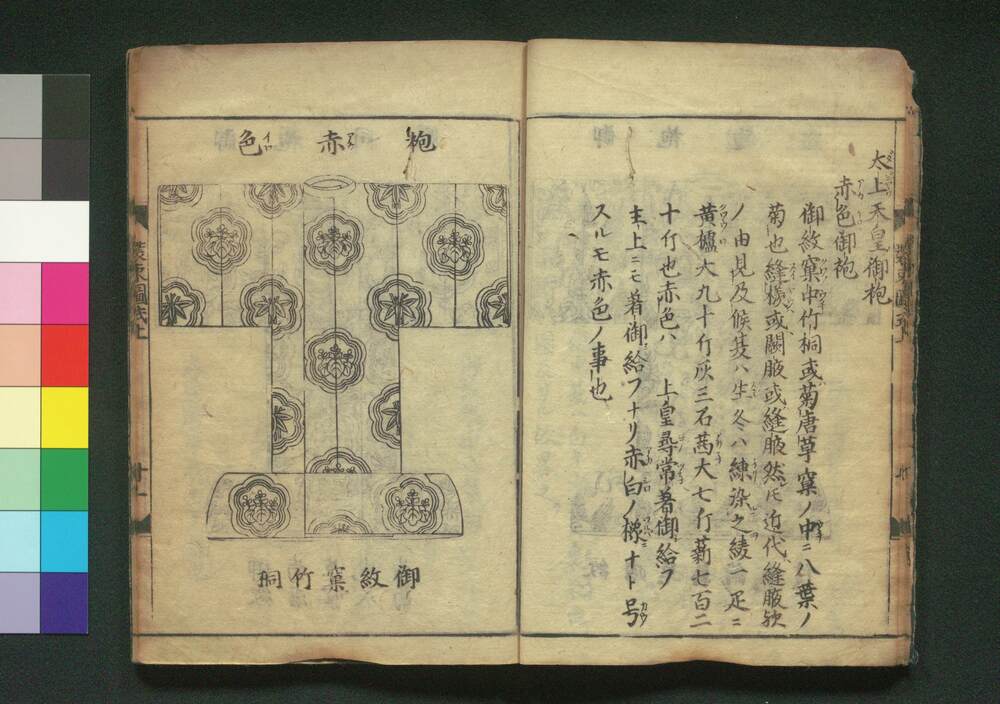 太上天皇御袍
赤色御袍
御紋窠中竹桐或菊唐草窠ノ中ニ八葉ノ
菊也縫様或闕腋或縫腋然𪜈近代縫腋欤
ノ由見及候夏ハ生冬ハ練染之綾一疋ニ
黄櫨大九十斤灰三石茜大七斤薪七百二
十斤也赤色ハ 上皇尋常著御給フ
主上ニモ着御給フナリ赤白ノ橡ナト号
スルモ赤色ノ事也
袍赤色
御紋窠竹桐
装束圖式上
十一